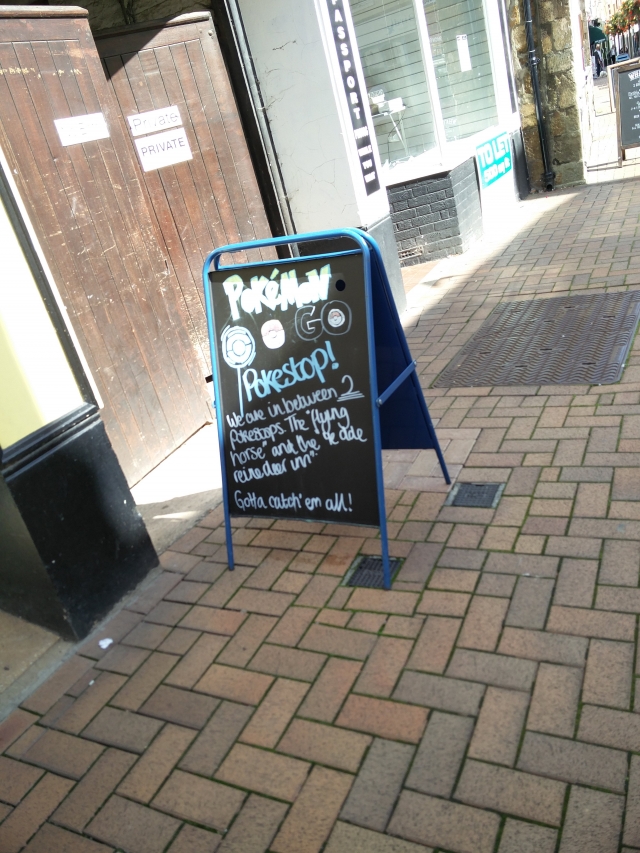 PASSPORT
Private
PRIVATE
TO LET
POKéMON
GO
Pokestop!
We are in between 2
pokestops. The "flying
horse" and the "ye olde
reinedeer inn".
Gotta catch' em all!